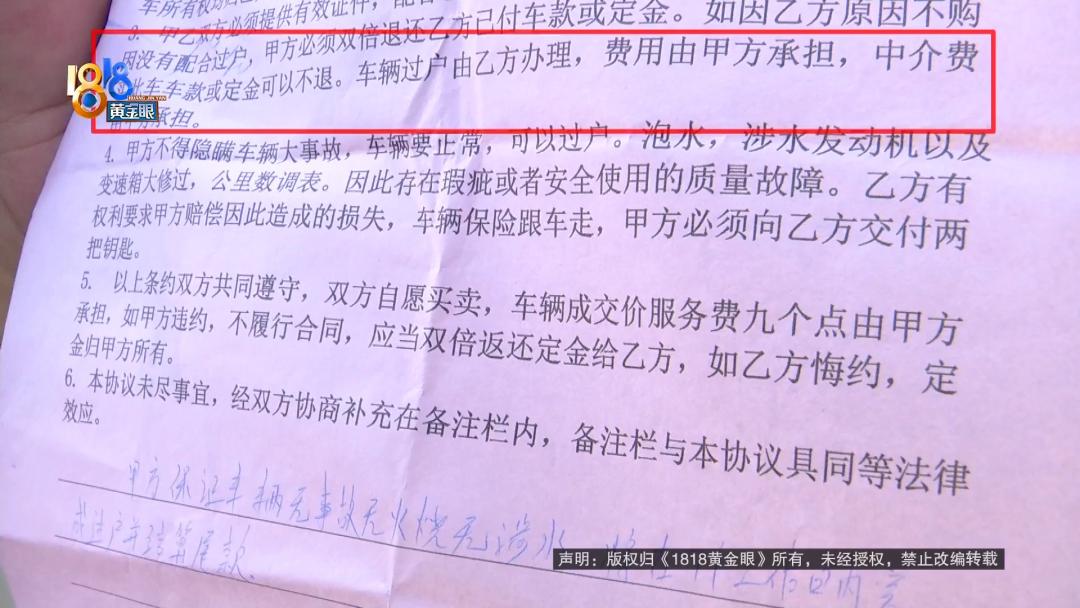 车所有权
3. 甲乙双方必须提供有效证件，配合
因没有配合过户，甲方必须双倍退还乙方已付车款或定金。如因乙方原因不购
此车车款或定金可以不退。车辆过户由乙方办理，费用由甲方承担，中介费
由甲方承担。
4. 甲方不得隐瞒车辆大事故，车辆要正常，可以过户。泡水，涉水发动机以及
变速箱大修过，公里数调表。因此存在瑕疵或者安全使用的质量故障。乙方有
权利要求甲方赔偿因此造成的损失，车辆保险跟车走，甲方必须向乙方交付两
把钥匙。
5. 以上条约双方共同遵守，双方自愿买卖，车辆成交价服务费九个点由甲方
承担，如甲方违约，不履行合同，应当双倍返还定金给乙方，如乙方悔约，定
金归甲方所有。
6. 本协议未尽事宜，经双方协商补充在备注栏内，备注栏与本协议具同等法律
效应。
甲方保证车辆无事故无火烧无涉水
工作日内完
成过户并结算尾款.
1818
HUANG JIN YAN
黄金眼
声明：版权归《1818黄金眼》所有，未经授权，禁止改编转载